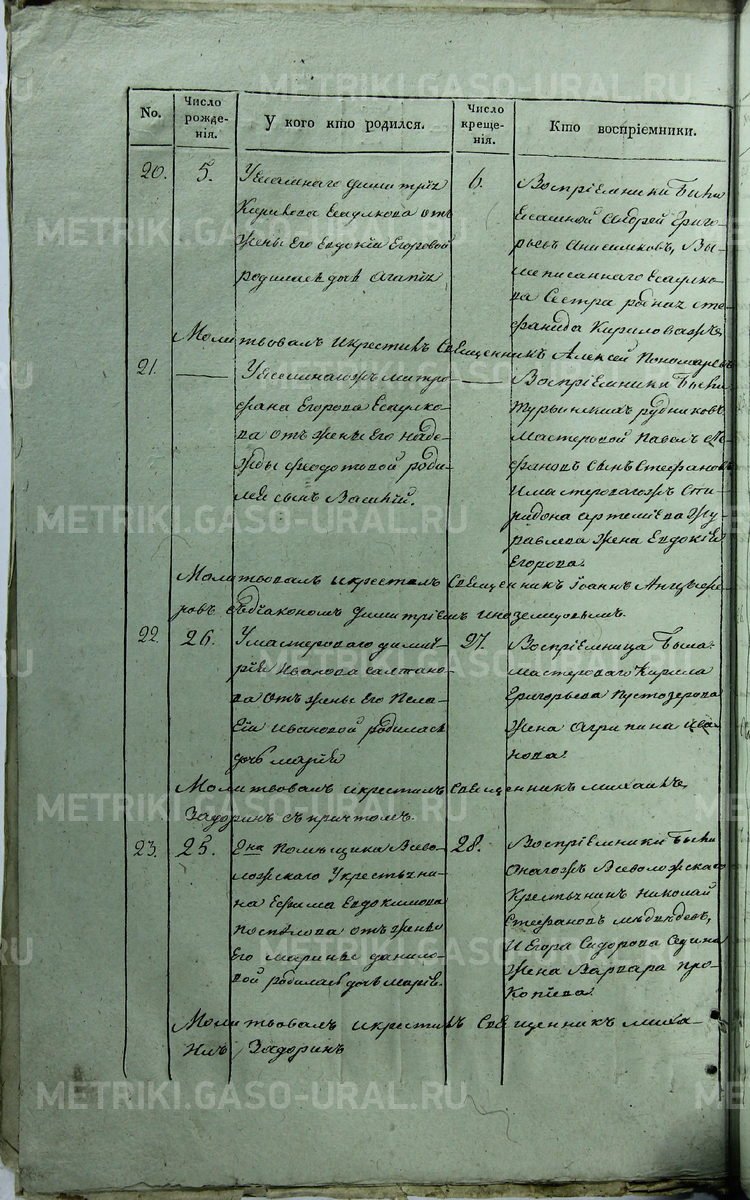 METRIKI.GASO-URAL.RU
No.
Число рожде-
нія.
У кого кто родился.
Число креще-
нія.
Кто воспріемники.
20.
5.
Димитрія
Кирилова Есаулкова отъ
жены Его Евдокіи Егоровой
родилась дочь Агапія
6.
Воспріемники были
Андрей Григо-
рьевъ Анисимковъ, Вы-
шеписаннаго Есаулко-
ва Сестра родная Сте-
фанида Кирилова
Молитвовалъ и крестилъ Священникъ Алексей Пономаревъ
21.
Митро-
фана Егорова Есаулко-
ва отъ жены Его Наде-
жды Феодотовой роди-
лся сынъ
Воспріемники были
Турьинскихъ рудниковъ
Мастеровой Павелъ
сынъ Стефановъ
и мастероваго Спи-
ридона Артеміева Жу-
равлева жена Евдокія
Егорова.
Молитвовалъ и крестилъ Священникъ Іоаннъ Анцыфе-
ровъ съ діакономъ Димитріемъ Иноземцовымъ.
22.
26.
У мастероваго Димит-
рія Иванова Салтано-
ва отъ жены Его Пела-
гіи Ивановой родилась
дочь Марія
27.
Воспріемница была
мастероваго Кирила
Григорьева Пустозерова
жена Агрипина Ива-
нова.
Молитвовалъ и крестилъ Священникъ Михаилъ
Задоринъ съ причтомъ.
23.
25.
помѣщика Всево-
ложскаго У крестьяни-
на Ефима Евдокимова
Поспѣлова отъ жены
Его Марины Данило-
вой родилась дочь Марія.
28.
Воспріемники были
Онагожъ Всеволожскаго
Крестьянинъ Николай
Стефановъ Мѣдвѣдевъ,
и Егора Сидорова
жена Варвара Про-
копіева.
Молитвовалъ и крестилъ Священникъ Миха-
илъ Задоринъ